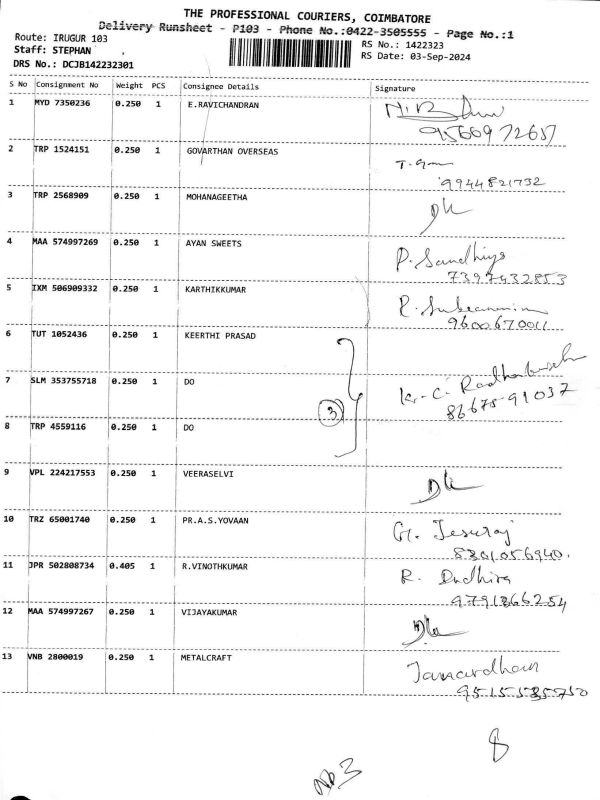 THE PROFESSIONAL COURIERS, COIMBATORE
Delivery Runsheet - P103 - Phone No.:0422-3505555 - Page No.:1
Route: IRUGUR 103
RS No.: 1422323
Staff: STEPHAN
RS Date: 03-Sep-2024
DRS No.: DCJB142232301
S No Consignment No Weight PCS Consignee Details Signature
1 MYD 7350236 0.250 1 E.RAVICHANDRAN
9566972657
2 TRP 1524151 0.250 1 GOVARTHAN OVERSEAS
9944821732
3 TRP 2568909 0.250 1 MOHANAGEETHA
4 MAA 574997269 0.250 1 AYAN SWEETS P. Sandhiya
7397432853
5 IXM 506909332 0.250 1 KARTHIKKUMAR
9600670011
6 TUT 1052436 0.250 1 KEERTHI PRASAD
7 SLM 353755718 0.250 1 DO
3 86675-91037
8 TRP 4559116 0.250 1 DO
9 VPL 224217553 0.250 1 VEERASELVI
10 TRZ 65001740 0.250 1 PR.A.S.YOVAAN G. Jesuraj
8301056940.
11 JPR 502808734 0.405 1 R.VINOTHKUMAR R.
9791366254
12 MAA 574997267 0.250 1 VIJAYAKUMAR
13 VNB 2800019 0.250 1 METALCRAFT Janardhan
8
3